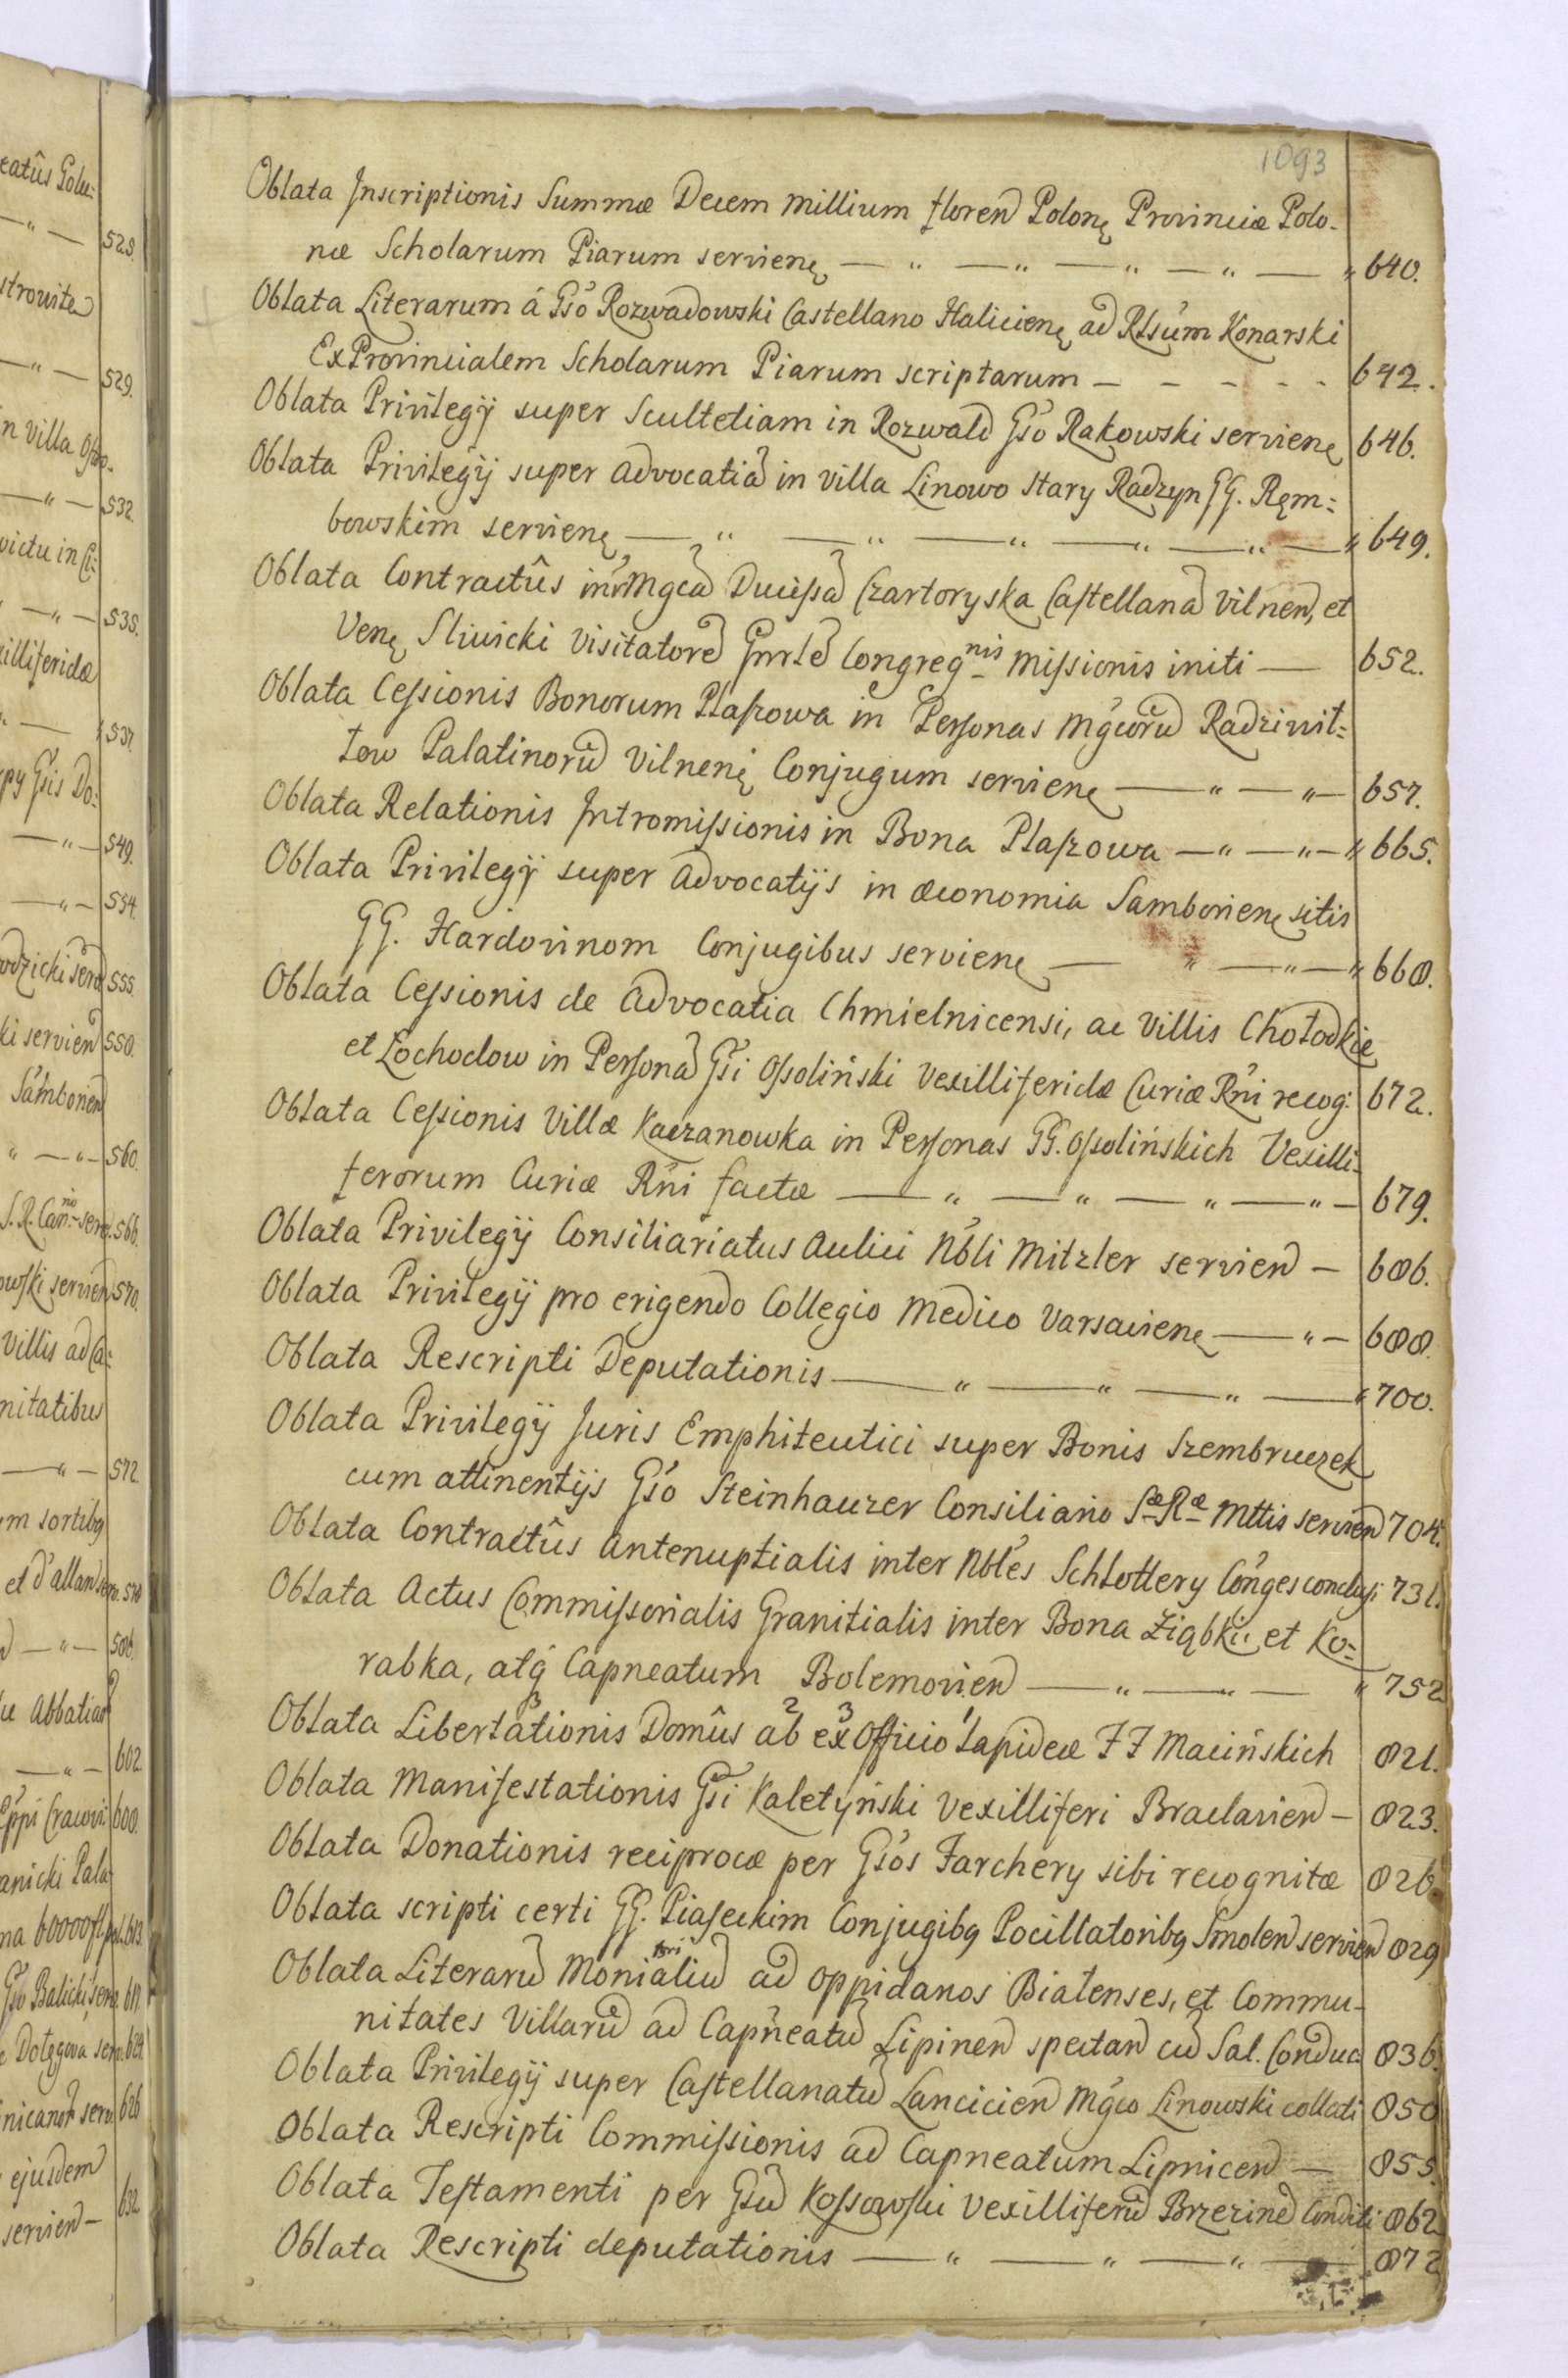 1093
Oblata Inscriptionis Summæ Decem Millium floren Polonę Provinciæ Polo-
næ Scholarum Piarum servienę — " — " — " — " — " 640.
Oblata Literarum á Gsō Rozwadowski Castellano Halicienę ad Rlsūm Konarski
ExProvincialem Scholarum Piarum scriptarum — - - - - 642.
Oblata Privilegÿ super Scultetiam in Rozwald Gsō Rakowski servienę 646.
Oblata Privilegÿ super Advocatia in villa Linowo Stary Radzyn GG. Ręm=
bowskim servienę — " — " — " — " — " — " 649.
Oblata Contractûs intr Mgca Ducissa Czartoryska Castellana Vilnen, et
Venę Sliwicki Visitatore Gnrle Congregnis Missionis initi — 652.
Oblata Cessionis Bonorum Płaszowa in Personas Mgcoru Radziwił=
łow Palatinoru Vilnenę Conjugum servienę — " — " — 657.
Oblata Relationis Intromissionis in Bona Płaszowa — " — " — " 665.
Oblata Privilegÿ super Advocatÿs in œconomia Samborienę sitis
GG. Hardovinom Conjugibus servienę — " — " — " 668.
Oblata Cessionis de Advocatia Chmielnicensi, ac Villis Chołodkie
et Łochodow in Persona Gsi Ossoliński Vexilliferidæ Curiæ Rńi recog: 672.
Oblata Cessionis Villæ Kaczanowka in Personas GG. Ossolińskich Vexilli-
ferorum Curiæ Rńi factæ — " — " — " — " — 679.
Oblata Privilegÿ Consiliariatus Aulici Nbli Mitzler servien — 686.
Oblata Privilegÿ pro erigendo Collegio Medico Varsavienę — " — 688.
Oblata Rescripti Deputationis — " — " — " — " 700.
Oblata Privilegÿ Juris Emphiteutici super Bonis Szembruczek
cum attinentÿs Gsō Steinhauzer Consiliario Sæ Ræ Mttis servien 704.
Oblata Contractûs Antenuptialis inter Nbles Schlottery Conges conclusi 731.
Oblata Actus Commissorialis Granitialis inter Bona Ziąbki et Ko=
rabka, atq Capneatum Bolemovien — " — " — " 752
Oblata Libertationis Domûs ab ex Officio Lapideæ FF Macińskich 821.
3 2 3 1
Oblata Manifestationis Gsi Kaletyński Vexilliferi Braclavien — 823.
Oblata Donationis reciprocæ per Gsōs Farchery sibi recognitæ 826.
Oblata scripti certi GG. Piaseckim Conjugibq Pocillatoribq Smolen servien 829
Oblata Literaru Monialiu ad Oppidanos Białenses, et Commu-
tori
nitates Villaru ad Capneatu Lipinen spectan cu Sal. Conduc 836.
Oblata Privilegÿ super Castellanatu Lancicien Mgco Linowski collati 850
Oblata Rescripti Commissionis ad Capneatum Lipnicen — 855.
Oblata Testamenti per Gsu Kossowski Vexilliferu Brzezine Conditi 862
Oblata Rescripti deputationis — " — " — " — 872